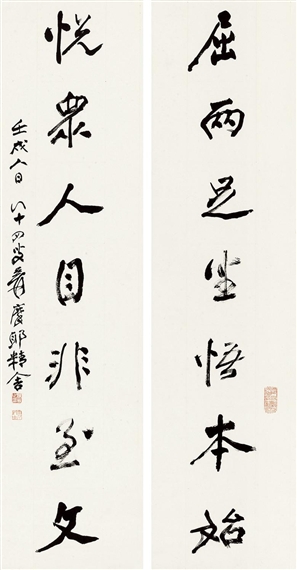 屈兩足坐悟本始
悦眾人目非至文
壬戌人日 八十四叟爰 摩耶精舍